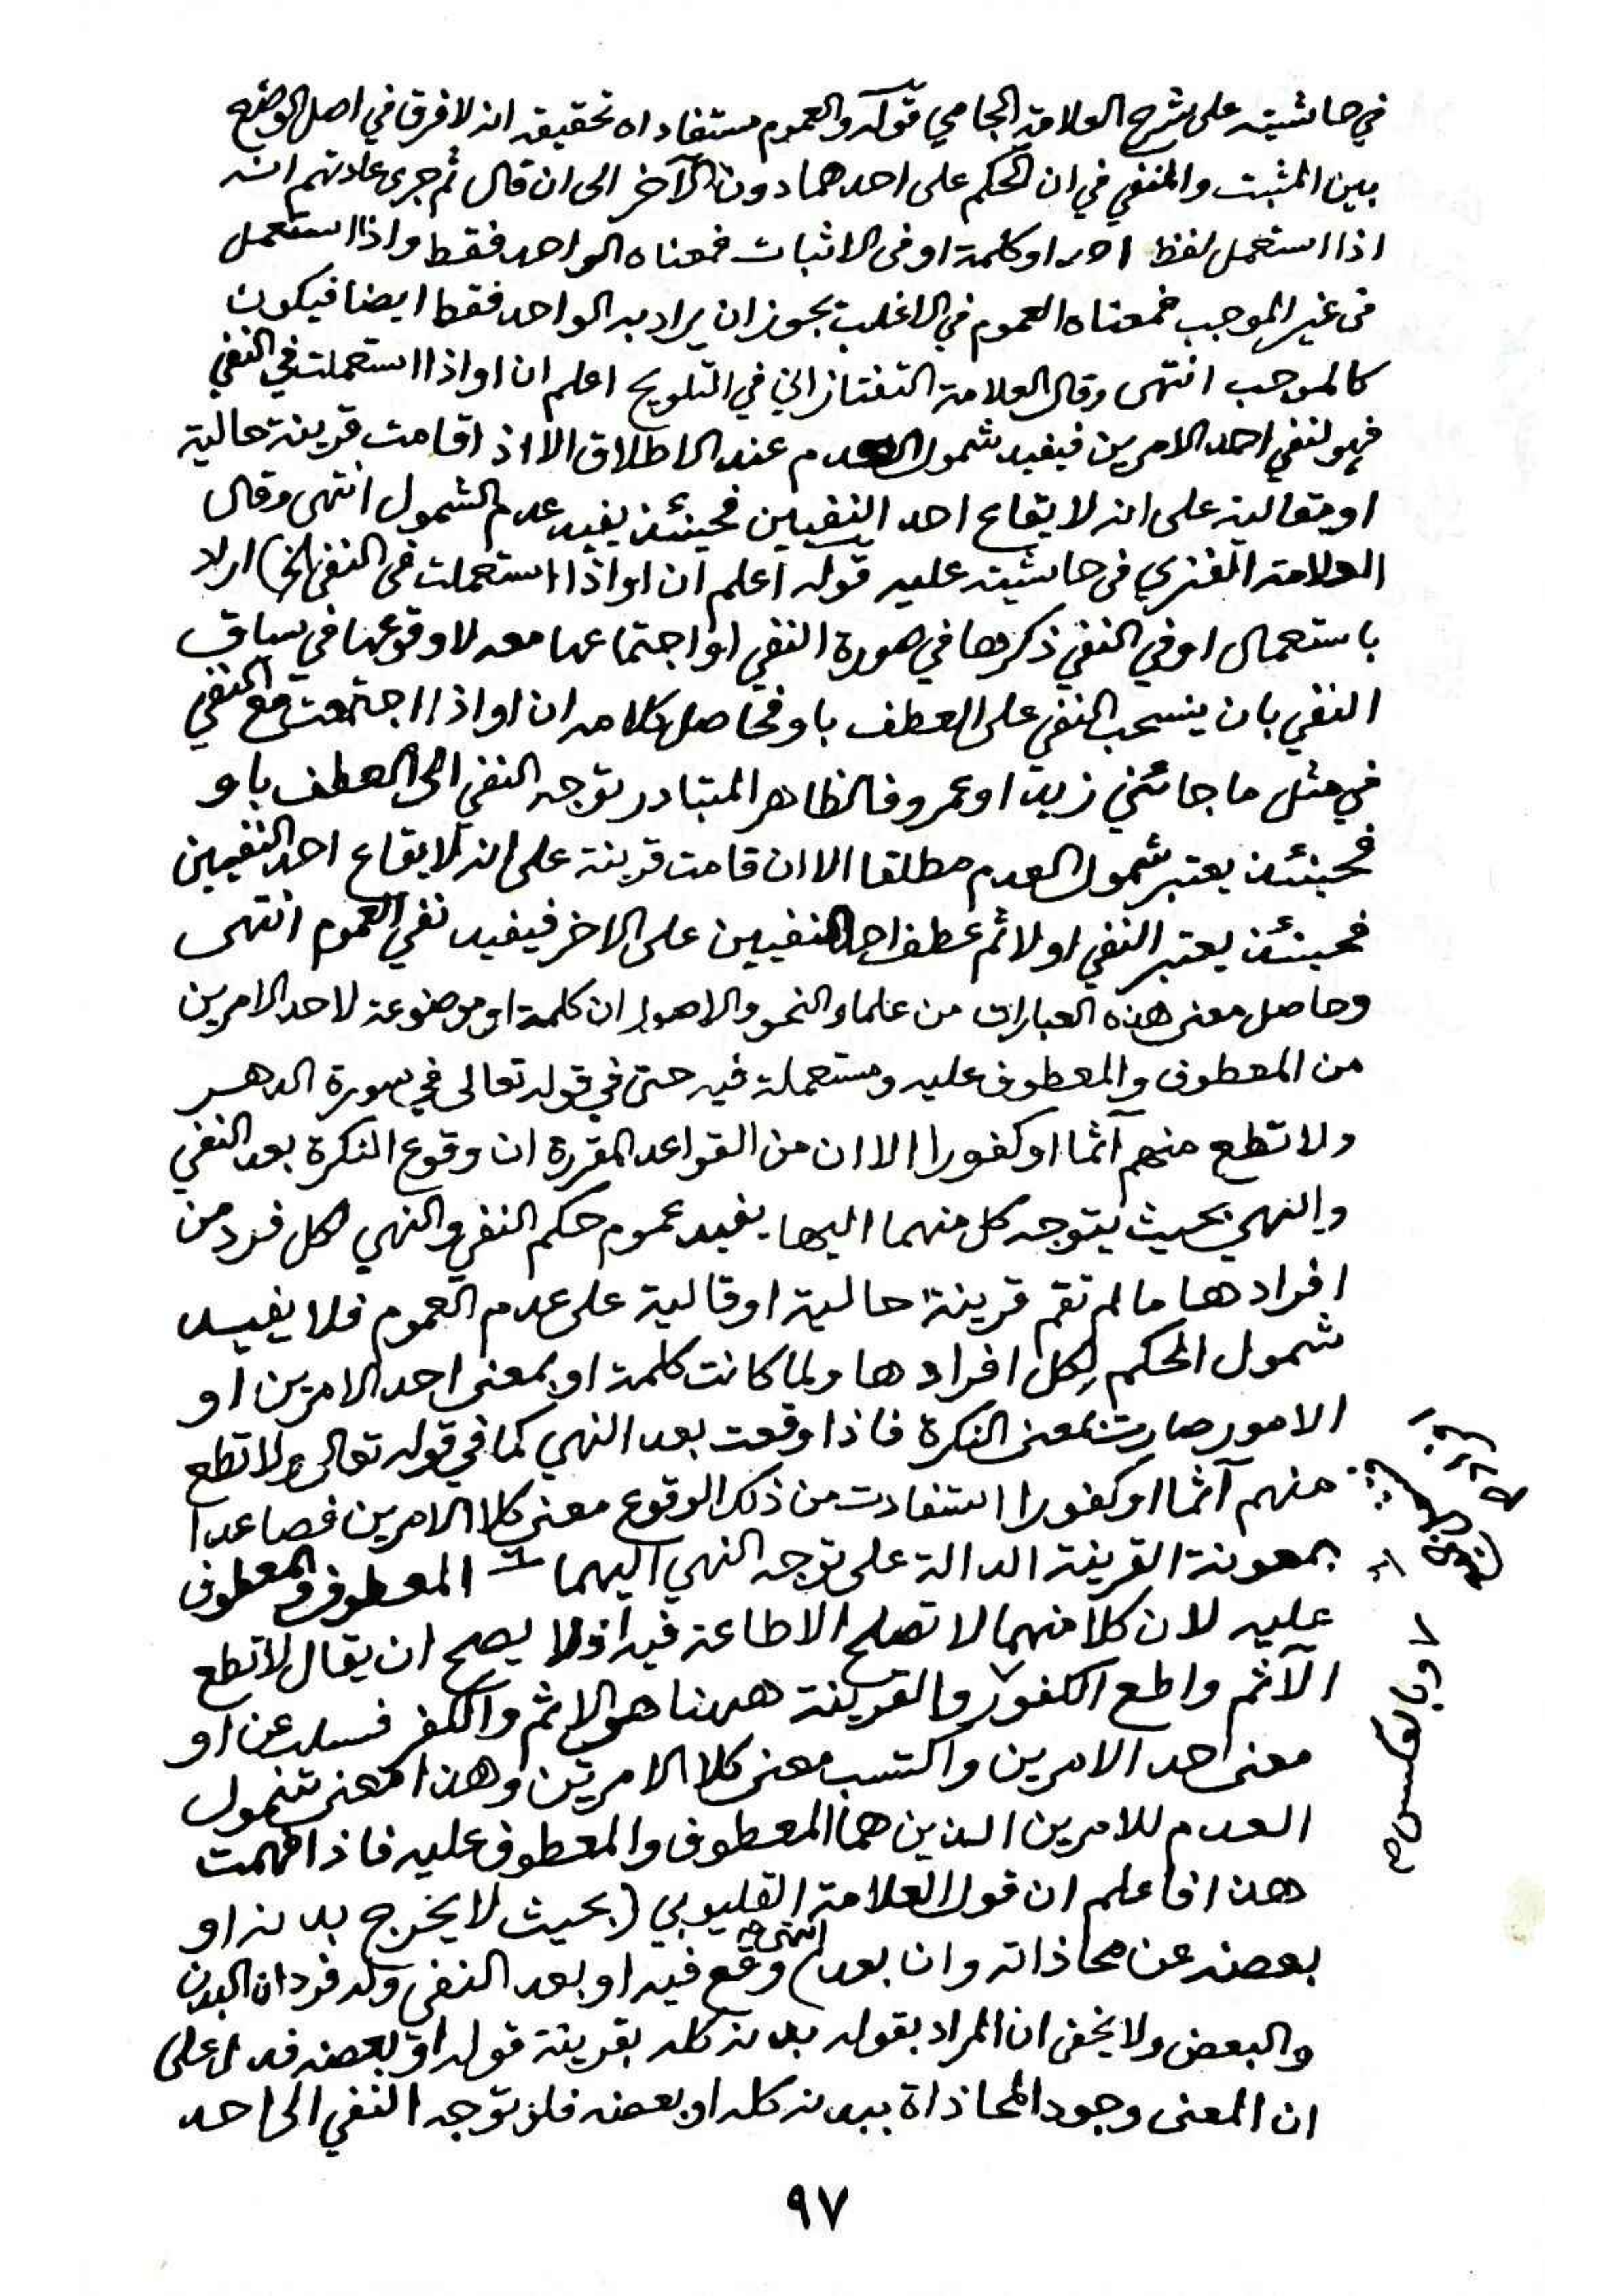 في حاشيته على شرح العلامة الجامي قوله والعموم مستفاد اه تحقيقه انه لا فرق في اصل الوضع
بين المثبت والمنفي في ان الحكم على احدهما دون الآخر الى ان قال ثم جرى عادتهم انه
اذا استعمل لفظ احد او كلمة او فى الاثبات فمعناه الواحد فقط واذا استعمل
فى غير الموجب فمعناه العموم في الاغلب يجوز ان يراد به الواحد فقط ايضا فيكون
كالموجب انتهى وقال العلامة التفتازاني في التلويح اعلم ان او اذا استعملت في النفي
فهو لنفي احد الامرين فيفيد شمول العدم عند الاطلاق الا اذا قامت قرينة حالية
او مقالية على انه لايقاع احد النفيين فحينئذ يفيد عدم الشمول انتهى وقال
العلامة الفنري فى حاشيته عليه قوله اعلم ان او اذا استعملت فى النفى الخ) اراد
باستعمال او في النفي ذكرها في صورة النفي او اجتماعها معه لا وقوعها في سياق
النفي بان ينسحب النفي على العطف باو فحاصل كلامه ان او اذا اجتمعت مع النفي
في مثل ما جائني زيد او عمرو فالظاهر المتبادر توجه النفي الى العطف باو
فحينئذ يعتبر شمول العدم مطلقا الا ان قامت قرينة على انه لايقاع احد النفيين
فحينئذ يعتبر النفي اولا ثم عطف احد النفيين على الاخر فيفيد نفي العموم انتهى
وحاصل معنى هذه العبارات من علماء النحو والاصول ان كلمة او موضوعة لاحد الامرين
من المعطوف والمعطوف عليه ومستعملة فيه حتى في قوله تعالى في سورة الدهر
ولا تطع منهم آثما او كفورا الا ان من القواعد المقررة ان وقوع النكرة بعد النفي
والنهي بحيث يتوجه كل منهما اليها يفيد عموم حكم النفي والنهي لكل فرد من
افرادها ما لم تقم قرينة حالية او قالية على عدم العموم فلا يفيد
شمول الحكم لكل افرادها ولما كانت كلمة او بمعنى احد الامرين او
الامور صارت بمعنى النكرة فاذا وقعت بعد النهي كما في قوله تعالى ولا تطع
منهم آثما او كفورا استفادت من ذلك الوقوع معنى كلا الامرين فصاعدا
بمعونة القرينة الدالة على توجه النهي اليهما المعطوف والمعطوف
عليه لان كلا منهما لا تصلح الاطاعة فيه اذ لا يصح ان يقال لا تطع
الآثم واطع الكفور والقرينة ههنا هو الاثم والكفر فسلب عن او
معنى احد الامرين واكتسب معنى كلا الامرين وهذا معنى شمول
العدم للامرين الذين هما المعطوف والمعطوف عليه فاذا فهمت
هذا فاعلم ان قول العلامة القليوبي (بحيث لا يخرج بدنه او
بعضه عن محاذاته وان بعد) انتهى وقع فيه او بعد النفي وله فردان البدن
والبعض ولا يخفى ان المراد بقوله بدنه كله بقرينة قوله او بعضه فدل على
ان المعنى وجود المحاذاة ببدنه كله او بعضه فلو توجه النفي الى احد
او بالعكس
٩٧